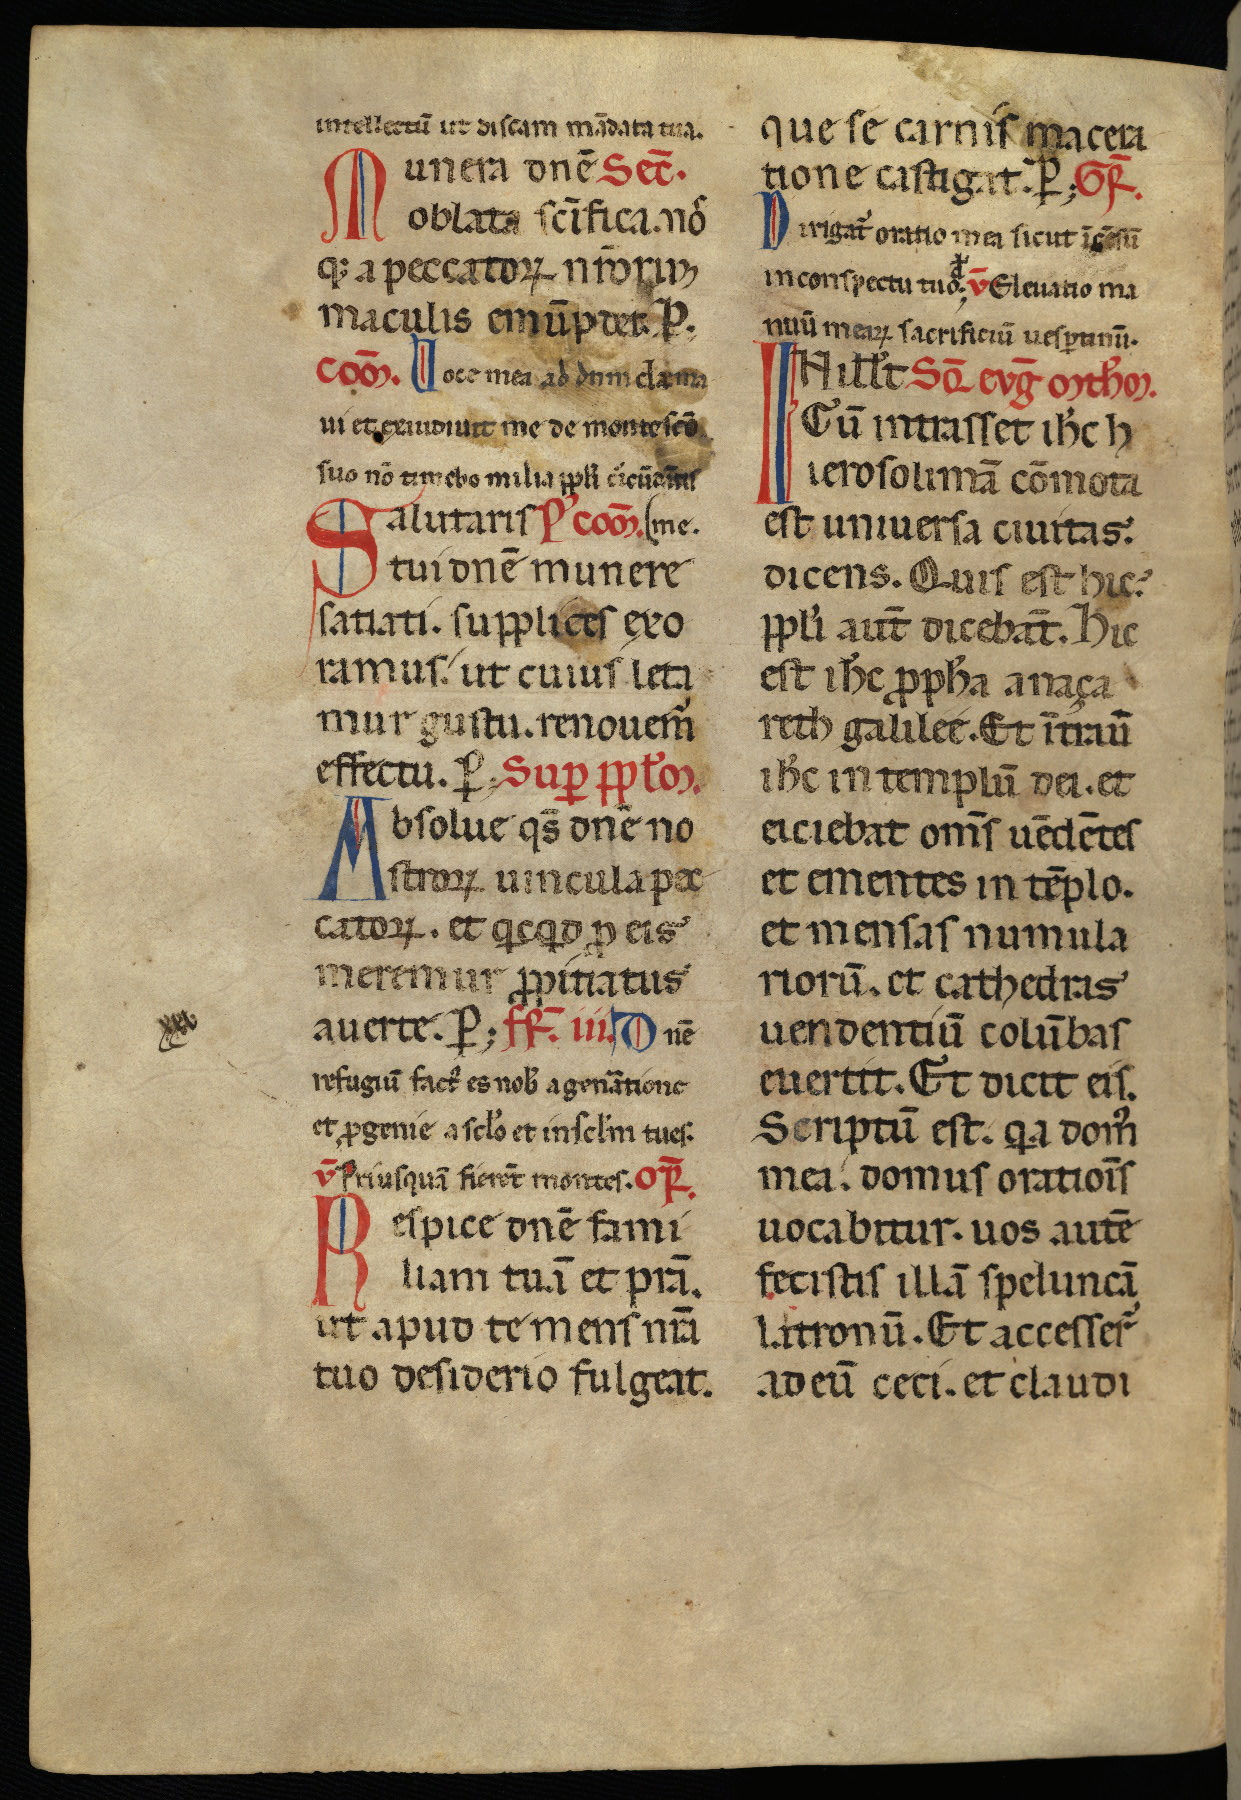 intellectū ut discam mādata tua.
Munera dnē Sec̄.
oblata sc̄ifica. nos
q; a peccatoꝝ nr̄orum
maculis emūdet. P.
com̄. Uoce mea ad dnm clama
ui et exaudiuit me de monte scō
suo nō timebo milia ppli c̄icūdātis
Salutaris P' com̄. (me.
tui dnē munere
satiati. supplices exo
ramus. ut cuius leta
mur gustu. renouem̄
effectu. P; Suꝑ ppl'm.
Absolue qs̄ dnē no
stroꝝ uincula pec
catoꝝ. et qicqid ꝓ eis
meremur ꝓpitiatus
auerte. P; fr̄. iii. Dnē
refugiū fact' es nob' a genātione
et ꝓgenie a sclo et in sclm tu es.
v̄ Priusquā fierēt montes. or̄.
Respice dnē fami
liam tuā et prā.
ut apud te mens nr̄a
tuo desiderio fulgeat.
que se carnis macera
tione castigat. P; Gr̄.
Dirigat' oratio mea sicut īcēsū
in conspectu tuo dn̄e; v̄ Eleuatio ma
nuū meaꝝ sacrificiū uesꝑtinū.
IN ill' t Sc̄d evḡ mth'm.
Cū intrasset ih'c h
ierosolimā cōmota
est uniuersa ciuitas.
dicens. Quis est hic.
ppl'i aut̄ dicebāt. Hic
est ih'c ꝓph'a a naça
reth galilee. Et ītrauit
ih'c in templū dei. et
eiciebat om̄s uēdētes
et ementes in tēplo.
et mensas numula
riorū. et cathedras
uendentiū colūbas
euertit. Et dicit eis.
Scriptū est. qia dom'
mea. domus oratiōis
uocabitur. uos autē
fecistis illā speluncā
latronū. Et accesser'
ad eū ceci. et claudi